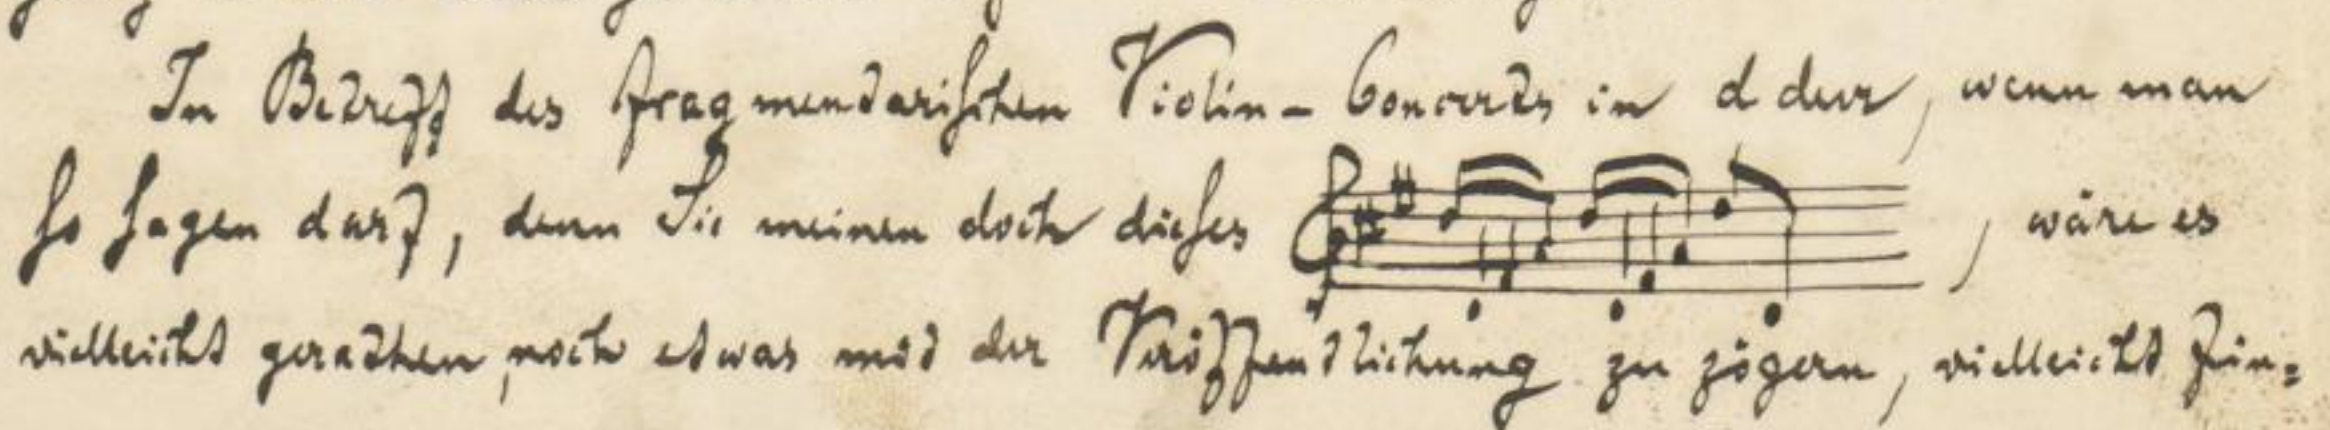 In Betreff des fragmentarischen Violin-Concerts in d dur, wenn man
so sagen darf, denn Sie meinen doch dieses , wäre es
vielleicht gerathen, noch etwas mit der Veröffentlichung zu zögern, vielleicht fin=